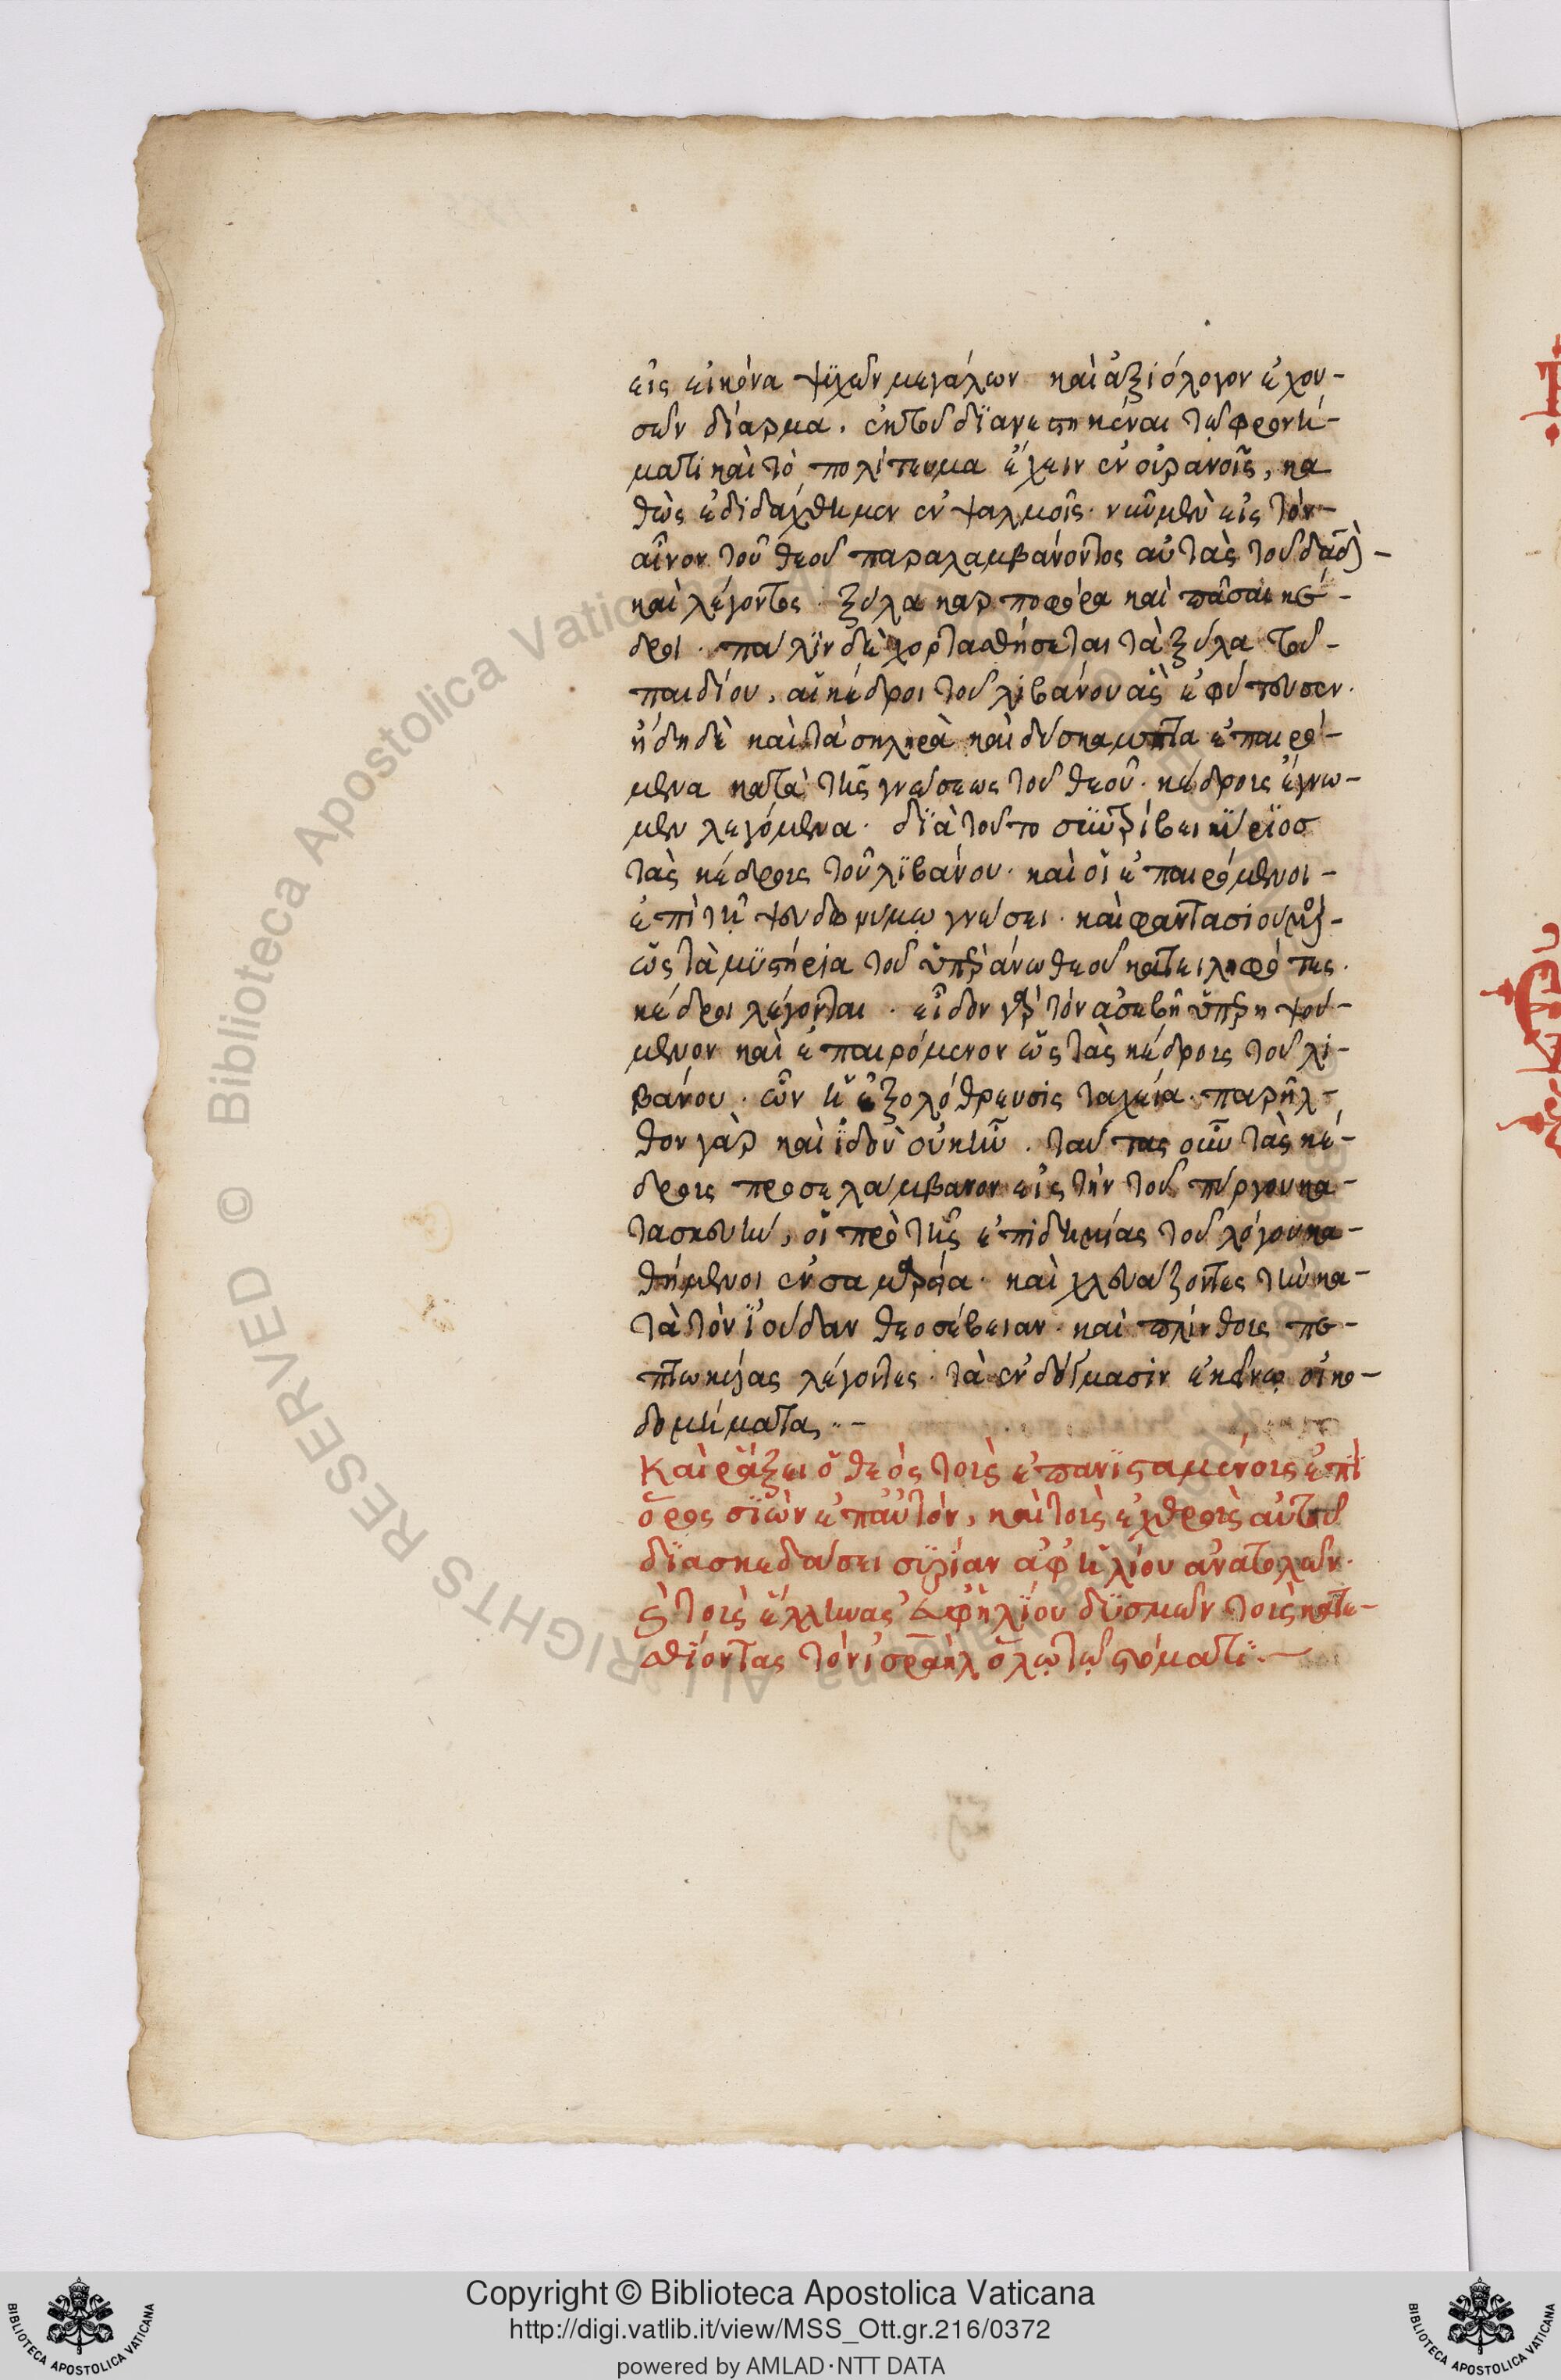 εἰς εἰκόνα ψυχῶν μεγάλων καὶ ἀξιόλογον ἐχου-
σῶν δίαρμα. ἐκ τοῦ διανεστηκέναι τῷ φρονή-
ματι καὶ τὸ πολίτευμα ἔχειν ἐν οὐρανοῖς, κα
θὼς ἐδιδάχθημεν ἐν ψαλμοῖς. εἰς τὸν-
αἶνον τοῦ θεοῦ παραλαμβάνοντος αὐτὰς τοῦ δαδ-
καὶ λέγοντος. ξύλα καρποφόρα καὶ πᾶσαι κέ-
δροι. πάλιν δὲ χορτασθήσεται τὰ ξύλα τοῦ-
παιδίου, αἱ κέδροι τοῦ λιβάνου ἃς ἐφύτευσεν.
ἤδη δὲ καὶ τὰ σκληρὰ καὶ δύσκαμπτα ἐπαιρό-
μενα κατὰ τῆς γνώσεως τοῦ θεοῦ. κέδρους ἔγνω-
μεν λεγόμενα. διὰ τοῦτο συντρίβει κύριος
τὰς κέδρους τοῦ λιβάνου. καὶ οἱ ἐπαιρόμενοι-
ἐπὶ τῇ ψευδωνύμῳ γνώσει. καὶ φαντασιούμ-
ὡς τὰ μυστήρια τοῦ ὑπεράνω θεοῦ κατειληφότες.
κέδροι λέγονται. εἶδον γὰρ τὸν ἀσεβῆ ὑπερηψού-
μενον καὶ ἐπαιρόμενον ὡς τὰς κέδρους τοῦ λι-
βάνου. ὧν ἡ ἐξολόθρευσις ταχεία. παρῆλ-
θον γὰρ καὶ ἰδοὺ οὐκ ἦν. ταύτας οὖν τὰς κέ-
δρους προσελάμβανον εἰς τὴν τοῦ πύργου κα-
τασκευήν, οἱ πρὸ τῆς ἐπιδημίας τοῦ λόγου κα-
θήμενοι ἐν σαμαρεία. καὶ χλευάζοντες τὴν κα-
τὰ τὸν ἰούδαν θεοσέβειαν. καὶ πλίνθους πε-
πτωκείας λέγοντες. τὰ ἐν δόγμασιν ἐκείνῳ οἰκο-
δομήματα.-
Καὶ ῥάξει ὁ θεὸς τοὺς ἐπανισταμένους ἐπὶ
ὄρος σιὼν ἐπ' αὐτὸν, καὶ τοὺς ἐχθροὺς αὐτοῦ
διασκεδάσει συρίαν ἀφ' ἡλίου ἀνατολῶν.
καὶ τοὺς ἕλληνας ἀφ' ἡλίου δυσμῶν τοὺς κατε-
σθίοντας τὸν ἰσραὴλ ὅλῳ τῷ στόματι.-
Biblioteca Apostolica Vaticana
ALL RIGHTS RESERVED © Biblioteca Apostolica Vaticana
Copyright © Biblioteca Apostolica Vaticana
http://digi.vatlib.it/view/MSS_Ott.gr.216/0372
powered by AMLAD·NTT DATA
BIBLIOTECA APOSTOLICA VATICANA
BIBLIOTECA APOSTOLICA VATICANA